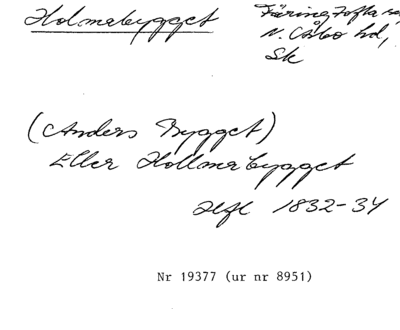 Holmabygget
Färingtofta sn,
N. Åsbo hd,
Sk
(Anders Bygget)
Eller Hollmabygget
Hfl 1832-34
Nr 19377 (ur nr 8951)